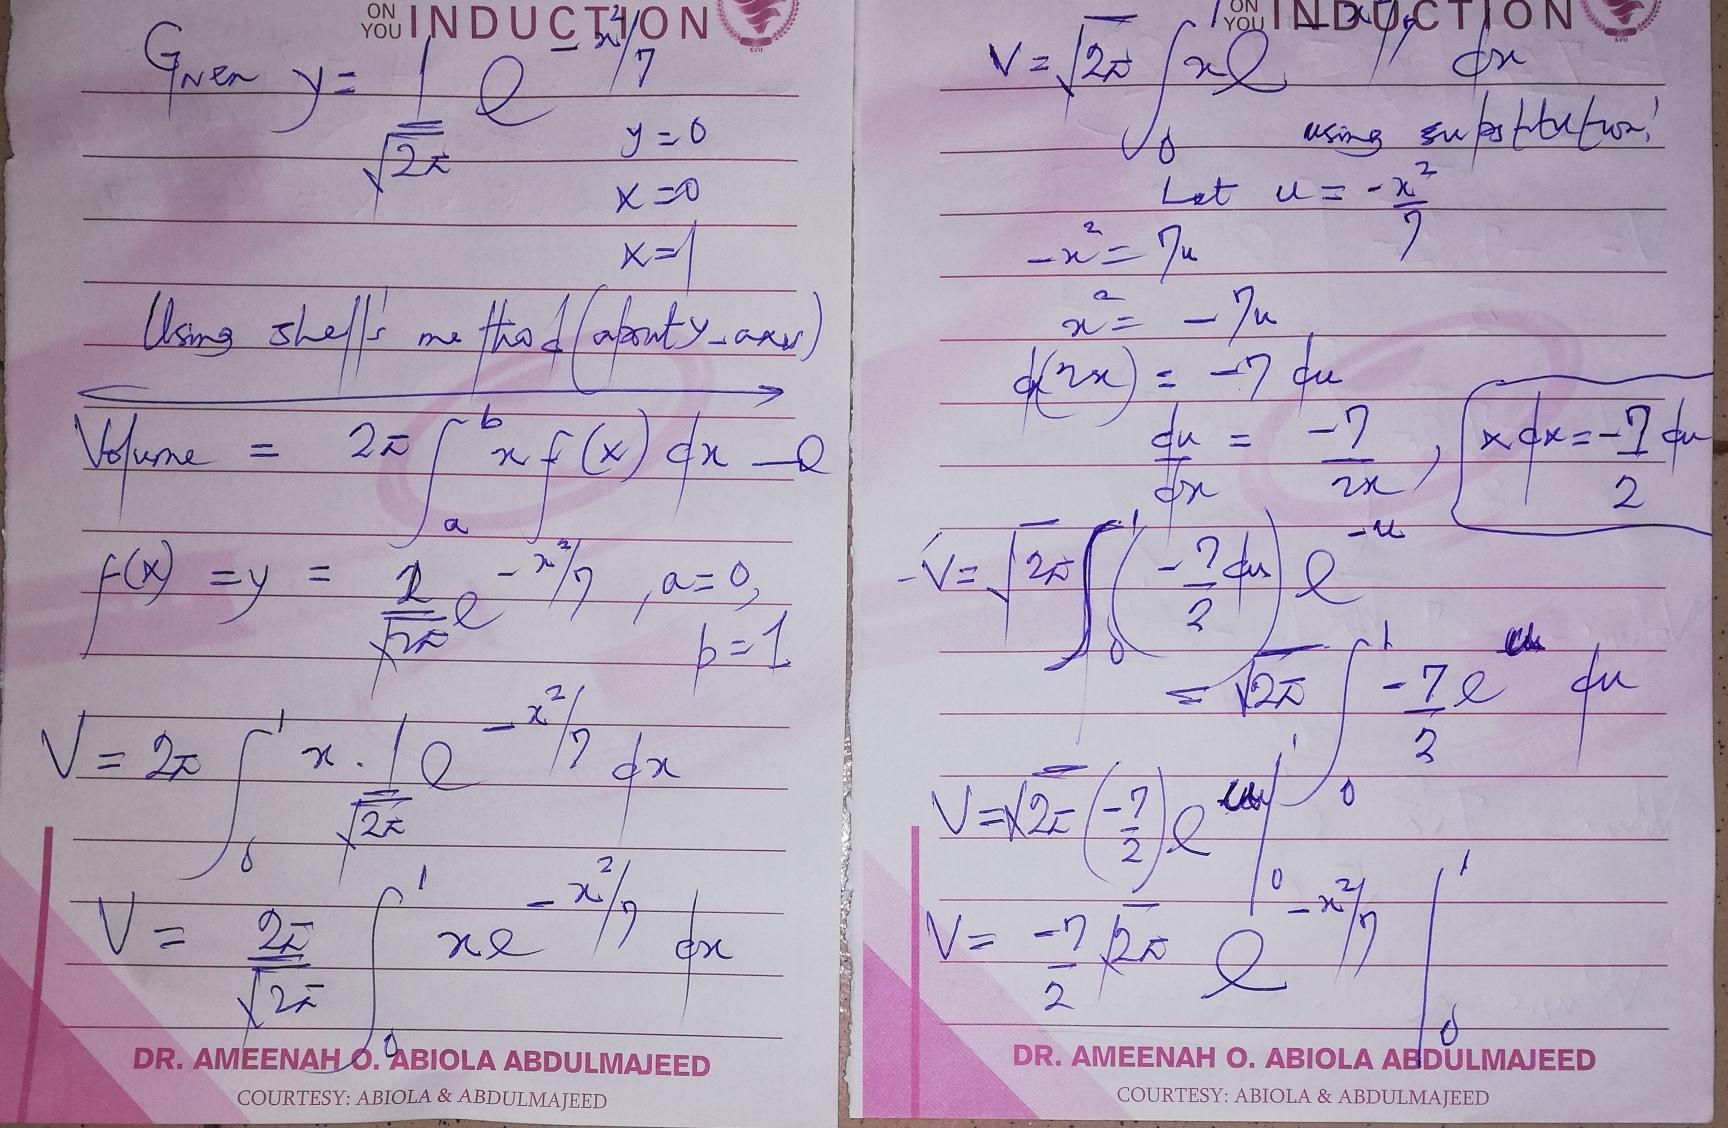 ON
YOU INDUCTION
Given y = 1/√2π e^-x²/7
y=0
x=0
x=1
Using shell's method (about y-axis)
Volume = 2π ∫_a^b x f(x) dx — e
f(x) = y = 1/√2π e^-x²/7, a=0,
b=1
V = 2π ∫_0^1 x . 1/√2π e^-x²/7 dx
V = 2π/√2π ∫_0^1 x e^-x²/7 dx
DR. AMEENAH O. ABIOLA ABDULMAJEED
COURTESY: ABIOLA & ABDULMAJEED
ON
YOU INDUCTION
V = √2π ∫_0^1 x e^-x²/7 dx
using substitution!
Let u = -x²/7
-x² = 7u
x² = -7u
dx(2x) = -7 du
du/dx = -7/2x, x dx = -7/2 du
-V = √2π ∫_0^1 (-7/2 du) e^-u
= √2π ∫_0^1 -7/2 e^u du
V = √2π (-7/2) e^u |_0^1
V = -7/2 √2π e^-x²/7 |_0^1
DR. AMEENAH O. ABIOLA ABDULMAJEED
COURTESY: ABIOLA & ABDULMAJEED